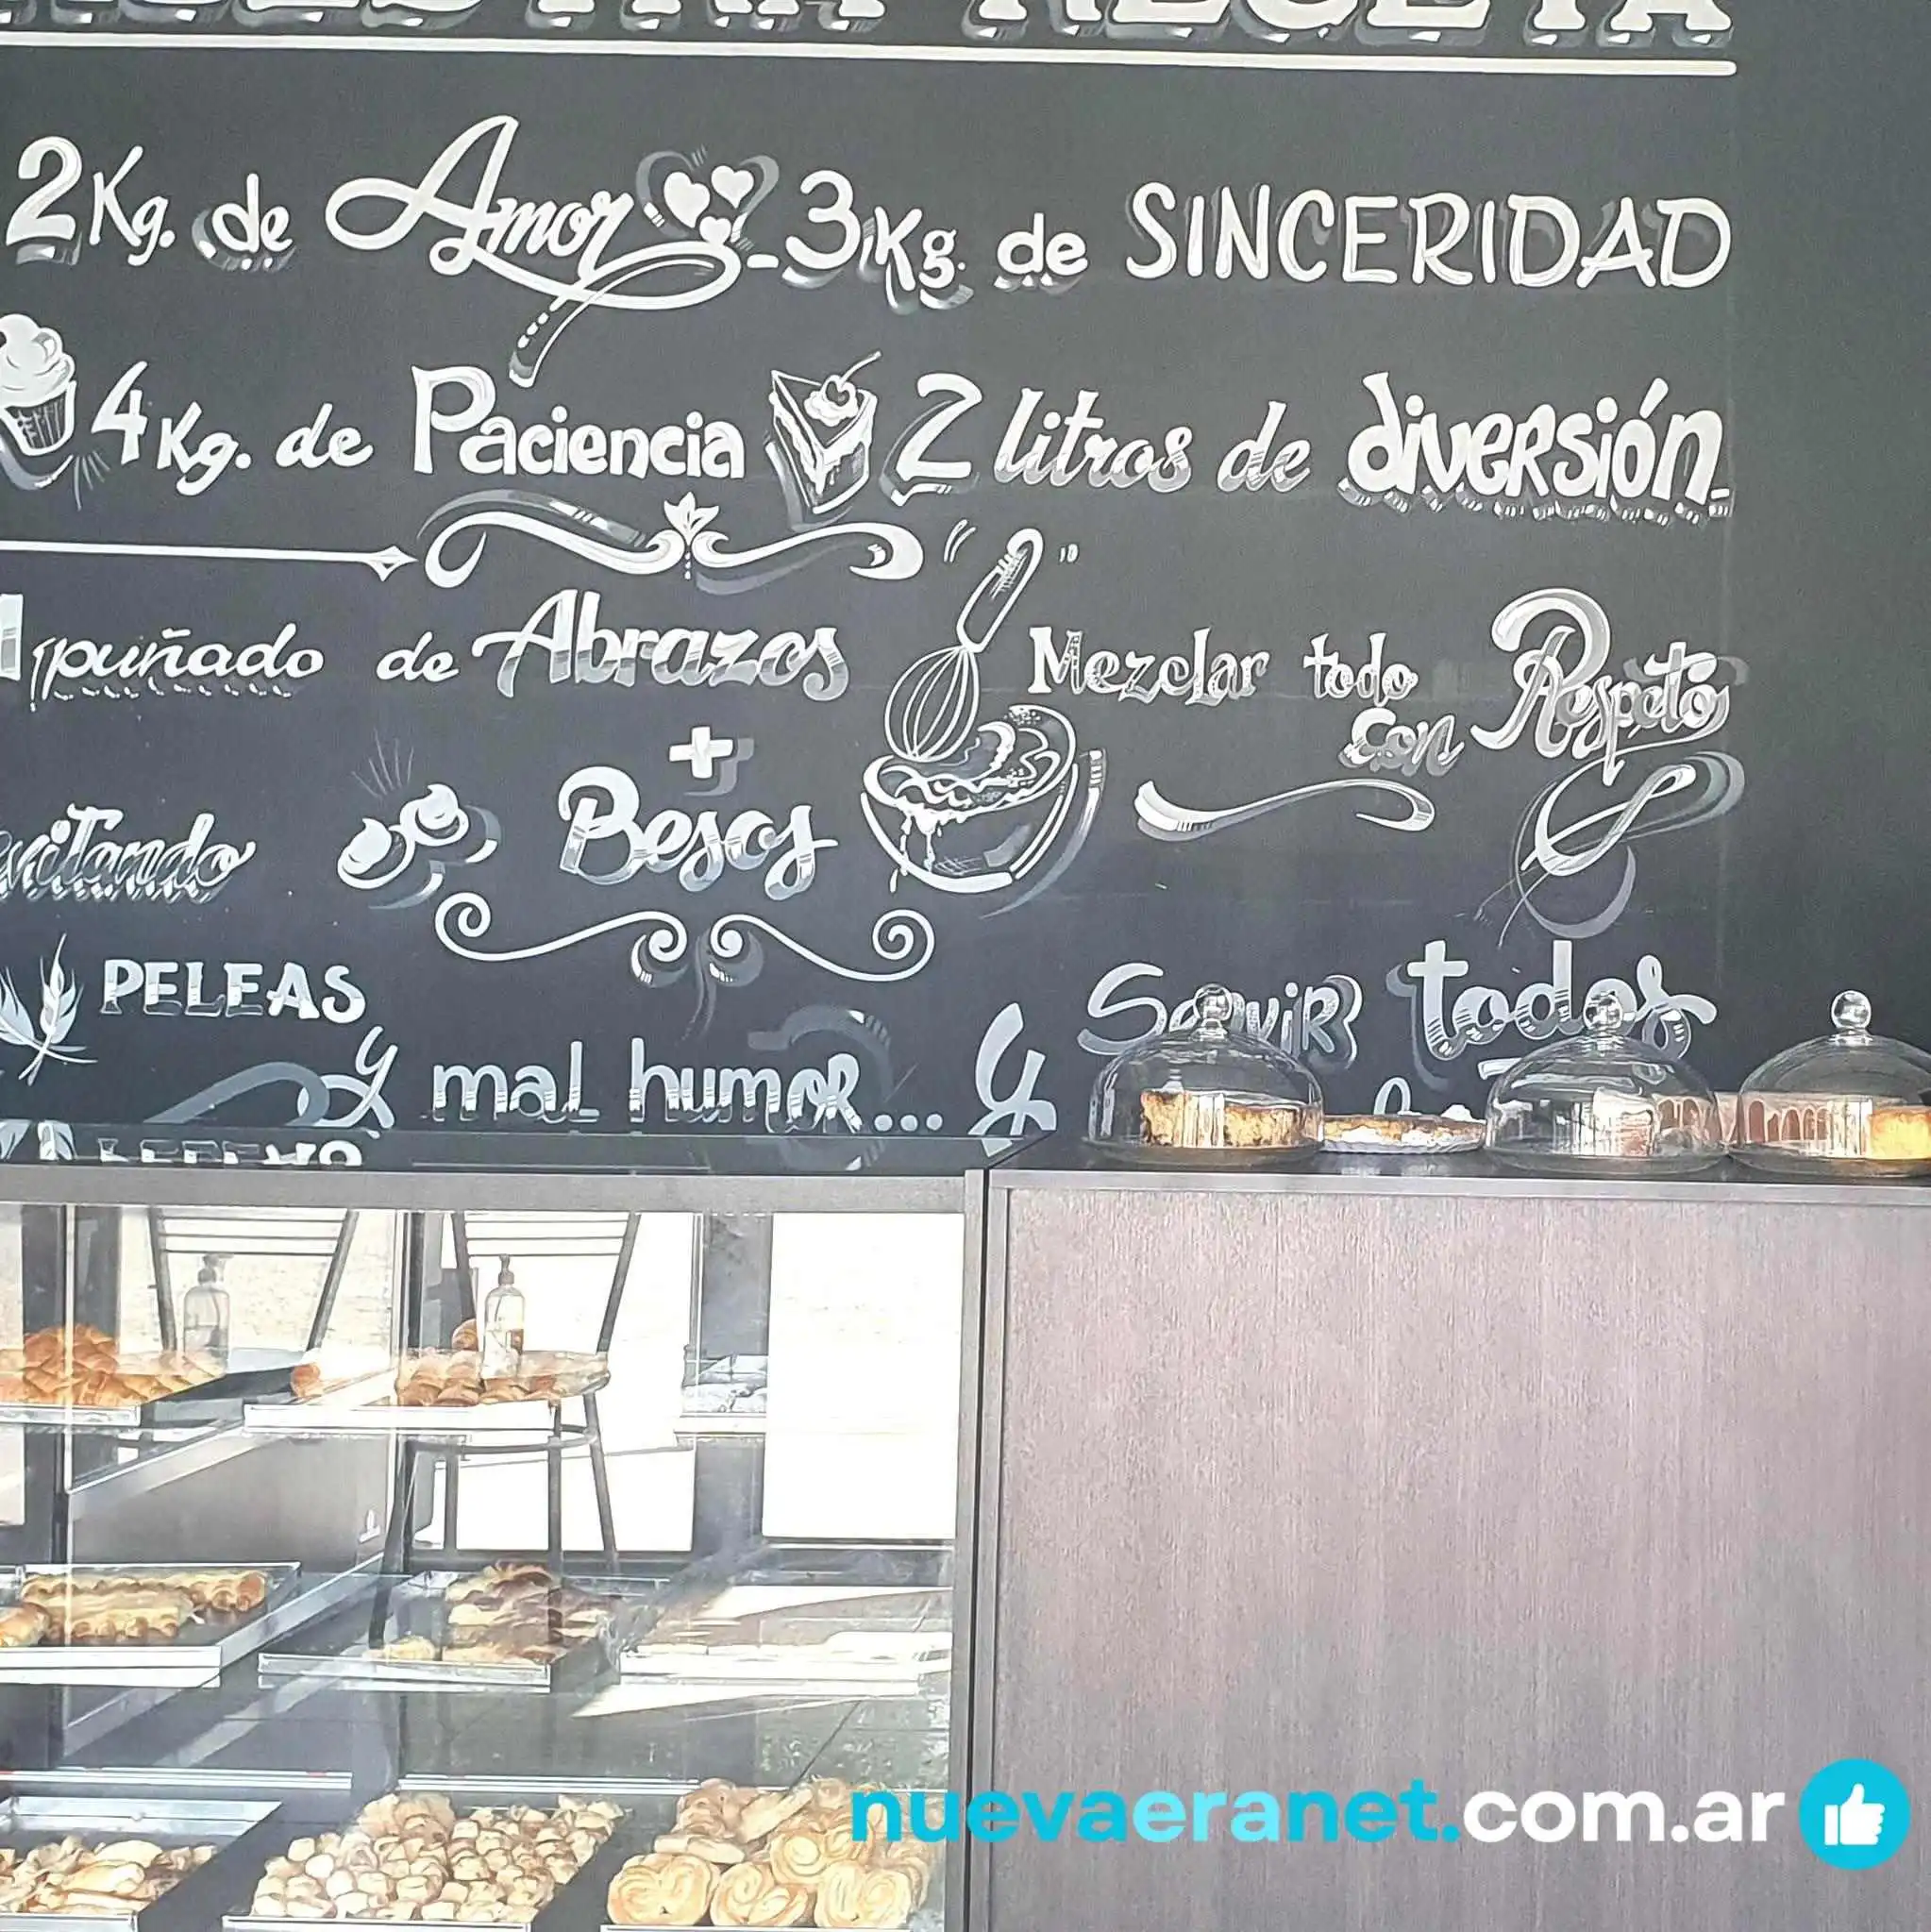 RECETA
2Kg. de Amor - 3Kg. de SINCERIDAD
4Kg. de Paciencia 2 litros de diversión
1 puñado de Abrazos
+
Besos
Mezclar todo
con Respeto
evitando
PELEAS
y mal humor... y
Servir todos
nuevaeranet.com.ar